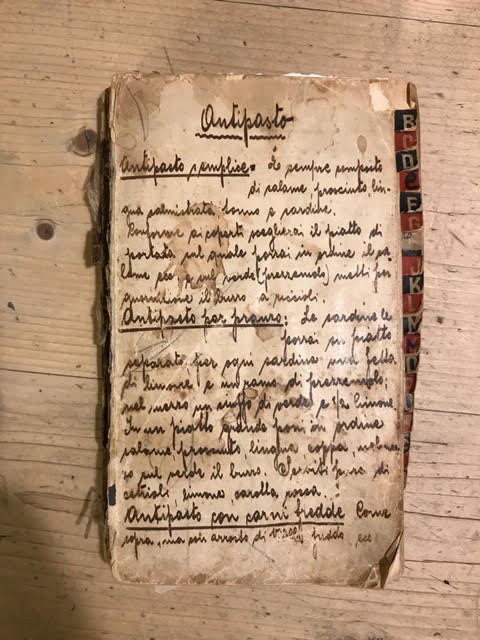 Antipasto
Antipasto semplice = È sempre composto
di salame, prosciutto, lin-
gua salmistrata, tonno e sardine.
Conforme ai coperti sceglierai il piatto di
portata sul quale porrai in ordine il sa-
lame ecc e sul verde (prezzemolo) metti per
guarnizione il burro a riccioli.
Antipasto per pranzo: Le sardine le
porrai su piatto
separato, per ogni sardina una fetta
di limone e un ramo di prezzemolo;
nel mezzo un ciuffo di verde e 1/2 limone.
In un piatto grande poni in ordine
salame prosciutto, lingua, coppa, nel mez-
zo sul verde il burro. Serviti di
cetrioli limone carotta, rossa.
Antipasto con carni fredde Come
sopra, ma con arrosto di freddo, ecc
B
C
D
E
F
G
J
K
L
M
N
O